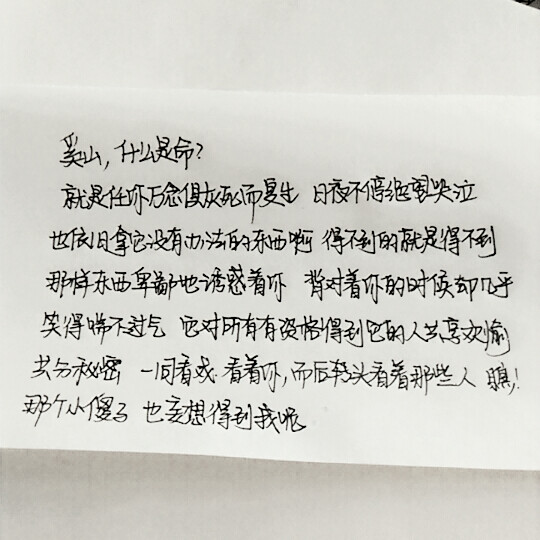 奚山，什么是命？
就是任你万念俱灰死而复生 日夜不停绝望哭泣
也依旧拿它没有办法的东西啊 得不到的就是得不到
那样东西卑鄙地诱惑着你 背对着你的时候却几乎
笑得喘不过气 它对所有有资格得到它的人共享欢愉
共分秘密 一同看戏 看着你，而后转头看着那些人 瞧！
那个小傻子 也妄想得到我呢